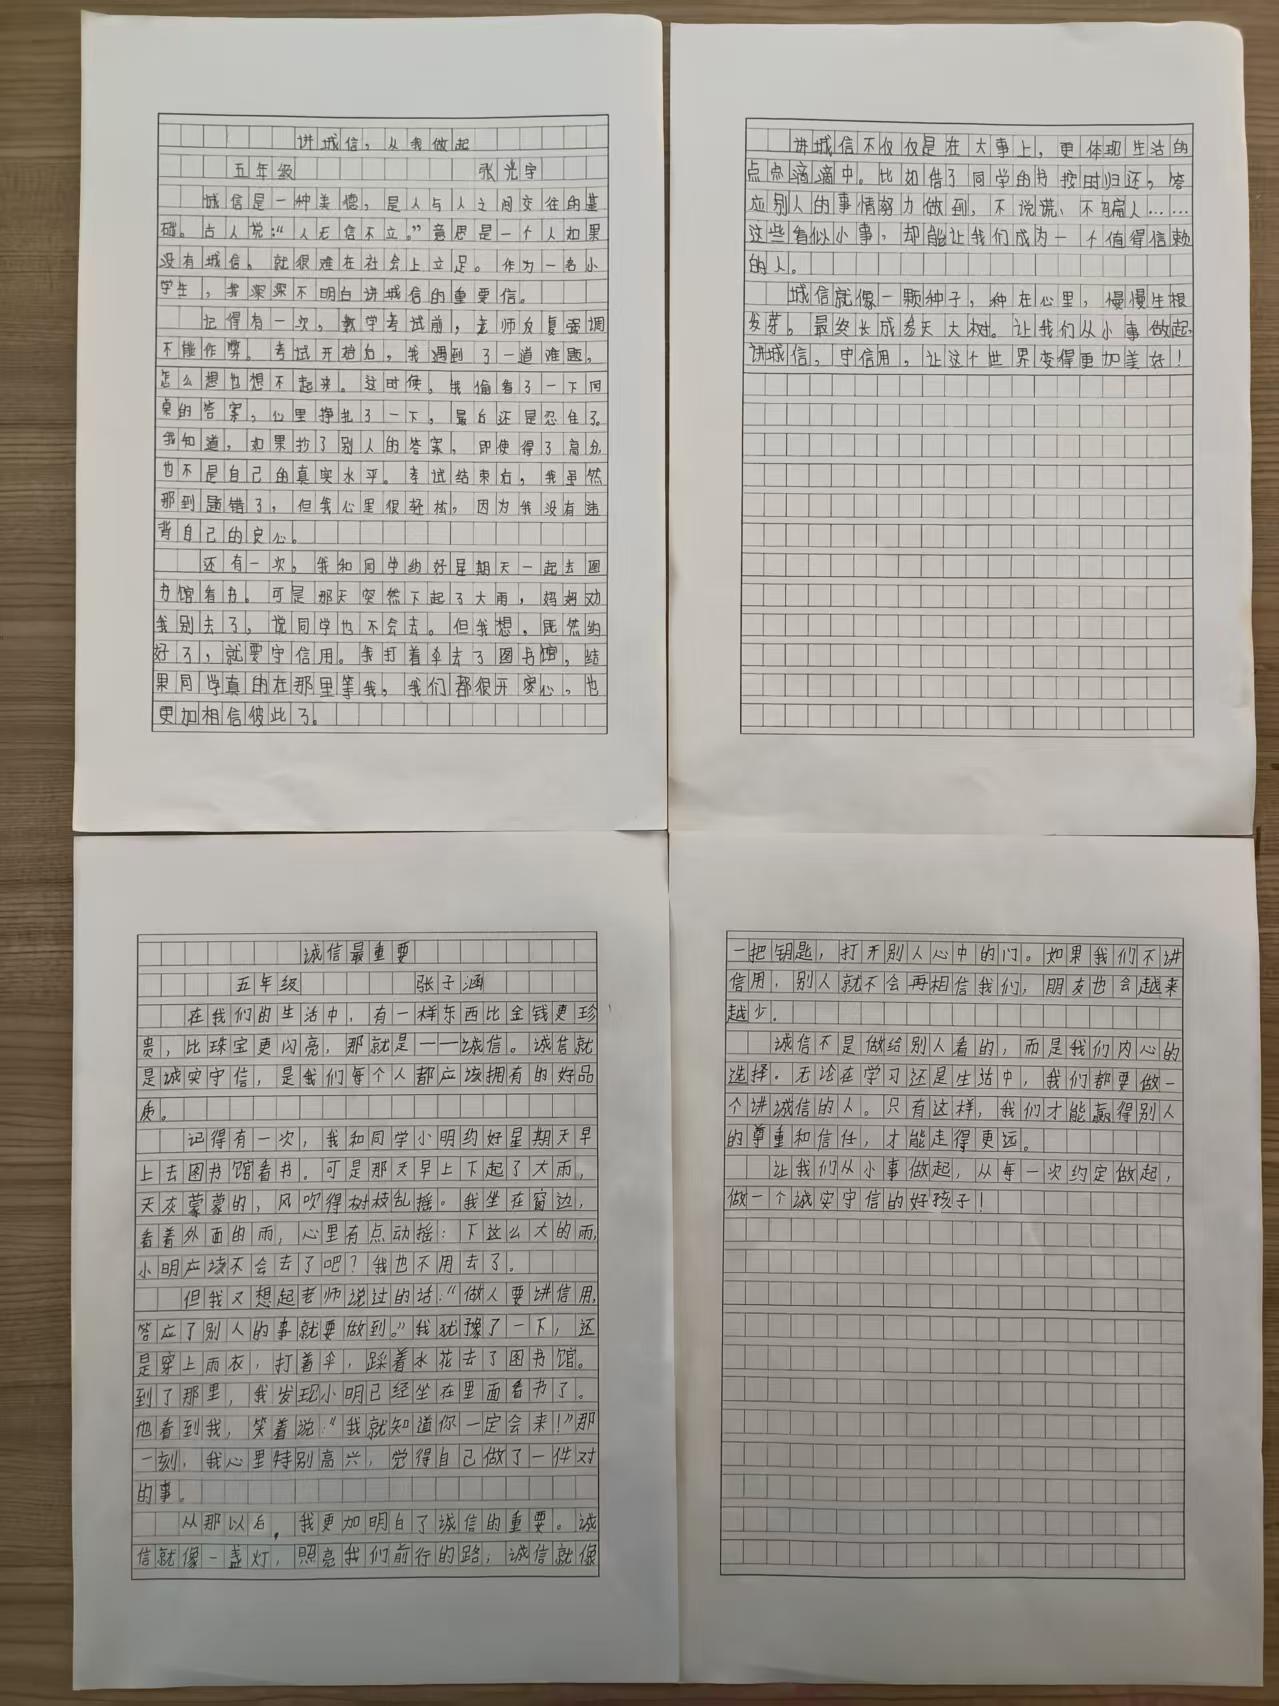 讲诚信，从我做起
五年级 张光宇
诚信是一种美德，是人与人之间交往的基
础。古人说：“人无信不立。”意思是一个人如果
没有诚信，就很难在社会上立足。作为一名小
学生，我深深不明白讲诚信的重要信。
记得有一次，数学考试前，老师反复强调
不能作弊。考试开始后，我遇到了一道难题，
怎么想也想不起来。这时候，我偷看了一下同
桌的答案，心里挣扎了一下，最后还是忍住了。
我知道，如果抄了别人的答案，即使得了高分，
也不是自己的真实水平。考试结束后，我虽然
那到题错了，但我心里很轻松，因为我没有违
背自己的良心。
还有一次，我和同学约好星期天一起去图
书馆看书。可是那天突然下起了大雨，妈妈劝
我别去了，说同学也不会去。但我想，既然约
好了，就要守信用。我打着伞去了图书馆，结
果同学真的在那里等我，我们都很开心，也
更加相信彼此了。
讲诚信不仅仅是在大事上，更体现生活的
点点滴滴中。比如借了同学的书按时归还，答
应别人的事情努力做到，不说谎、不骗人……
这些看似小事，却能让我们成为一个值得信赖
的人。
诚信就像一颗种子，种在心里，慢慢生根
发芽，最终长成参天大树。让我们从小事做起，
讲诚信，守信用，让这个世界变得更加美好！
诚信最重要
五年级 张子涵
在我们的生活中，有一样东西比金钱更珍
贵，比珠宝更闪亮，那就是——诚信。诚信就
是诚实守信，是我们每个人都应该拥有的好品
质。
记得有一次，我和同学小明约好星期天早
上去图书馆看书。可是那天早上下起了大雨，
天灰蒙蒙的，风吹得树枝乱摇。我坐在窗边，
看着外面的雨，心里有点动摇：下这么大的雨，
小明应该不会去了吧？我也不用去了。
但我又想起老师说过的话：“做人要讲信用，
答应了别人的事就要做到。”我犹豫了一下，还
是穿上雨衣，打着伞，踩着水花去了图书馆。
到了那里，我发现小明已经坐在里面看书了。
他看到我，笑着说：“我就知道你一定会来！”那
一刻，我心里特别高兴，觉得自己做了一件对
的事。
从那以后，我更加明白了诚信的重要。诚
信就像一盏灯，照亮我们前行的路；诚信就像
一把钥匙，打开别人心中的门。如果我们不讲
信用，别人就不会再相信我们，朋友也会越来
越少。
诚信不是做给别人看的，而是我们内心的
选择。无论在学习还是生活中，我们都要做一
个讲诚信的人。只有这样，我们才能赢得别人
的尊重和信任，才能走得更远。
让我们从小事做起，从每一次约定做起，
做一个诚实守信的好孩子！